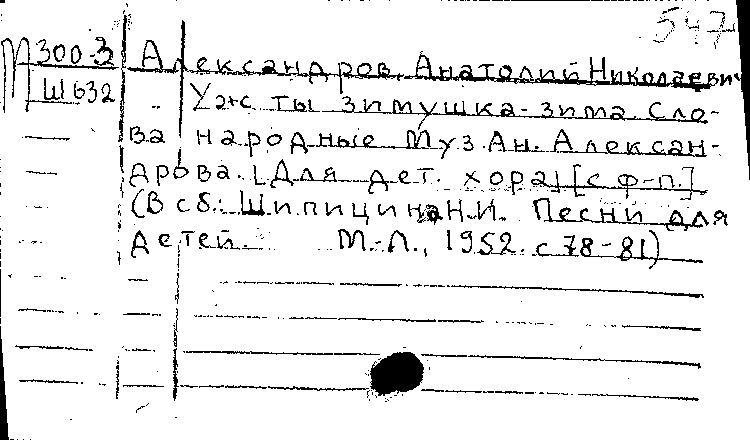 547
М300-3 Александров, Анатолий Николаевич
Ш632 Уж ты зимушка-зима. Сло-
ва народные Муз. Ан. Алексан-
дрова. [Для дет. хора] [с ф-п.]
(В сб.: Шипицина Н.И. Песни для
детей. М.-Л., 1952. с 78-81)